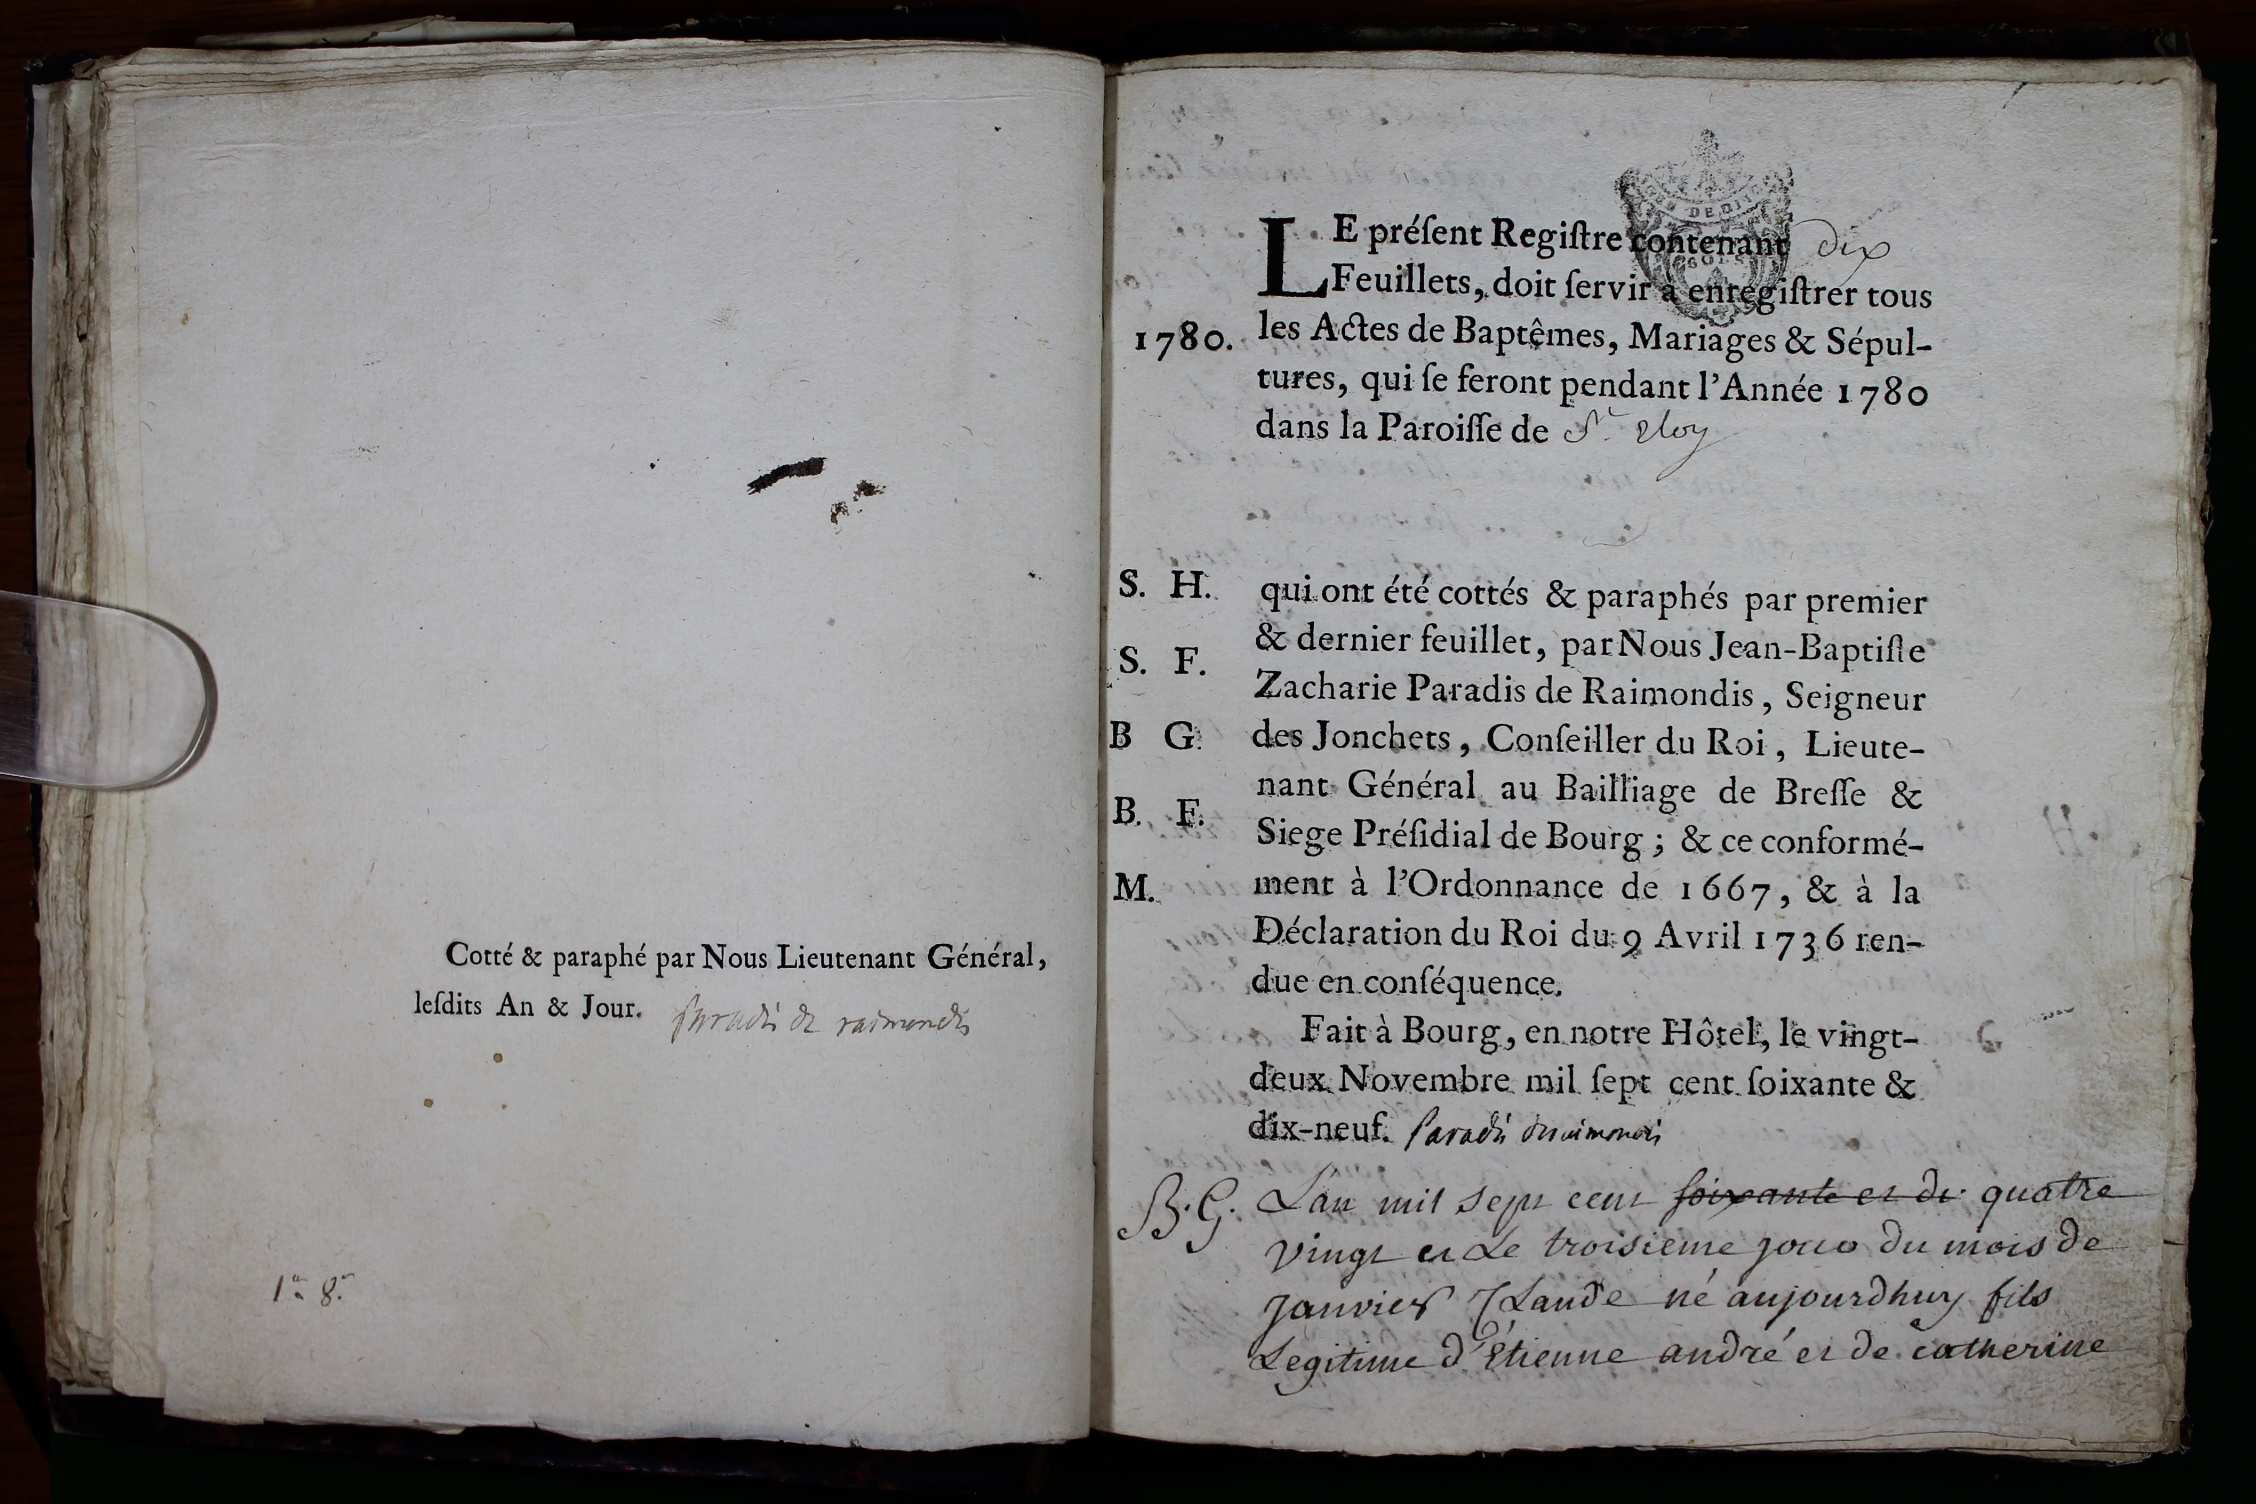 Cotté & paraphé par Nous Lieutenant Général,
leſdits An & Jour. paradis de raimondis
1.re 8.e
LE préſent Regiſtre contenant dix
Feuillets, doit ſervir à enregiſtrer tous
1780. les Actes de Baptêmes, Mariages & Sépul-
tures, qui ſe feront pendant l'Année 1780
dans la Paroiſſe de St. eloy
S. H. qui ont été cottés & paraphés par premier
& dernier feuillet, par Nous Jean-Baptiſte
S. F. Zacharie Paradis de Raimondis, Seigneur
B G. des Jonchets, Conſeiller du Roi, Lieute-
nant Général au Bailliage de Breſſe &
B. F. Siege Préſidial de Bourg; & ce conformé-
M. ment à l'Ordonnance de 1667, & à la
Déclaration du Roi du 9 Avril 1736 ren-
due en conſéquence.
Fait à Bourg, en notre Hôtel, le vingt-
deux Novembre mil ſept cent ſoixante &
dix-neuf. Paradis de raimondis
B. G. L'an mil sept cent soixante et di quatre
vingt et Le troisieme jour du mois de
janvier Claude né aujourdhuy fils
Legitime d'Étienne andré et de catherine